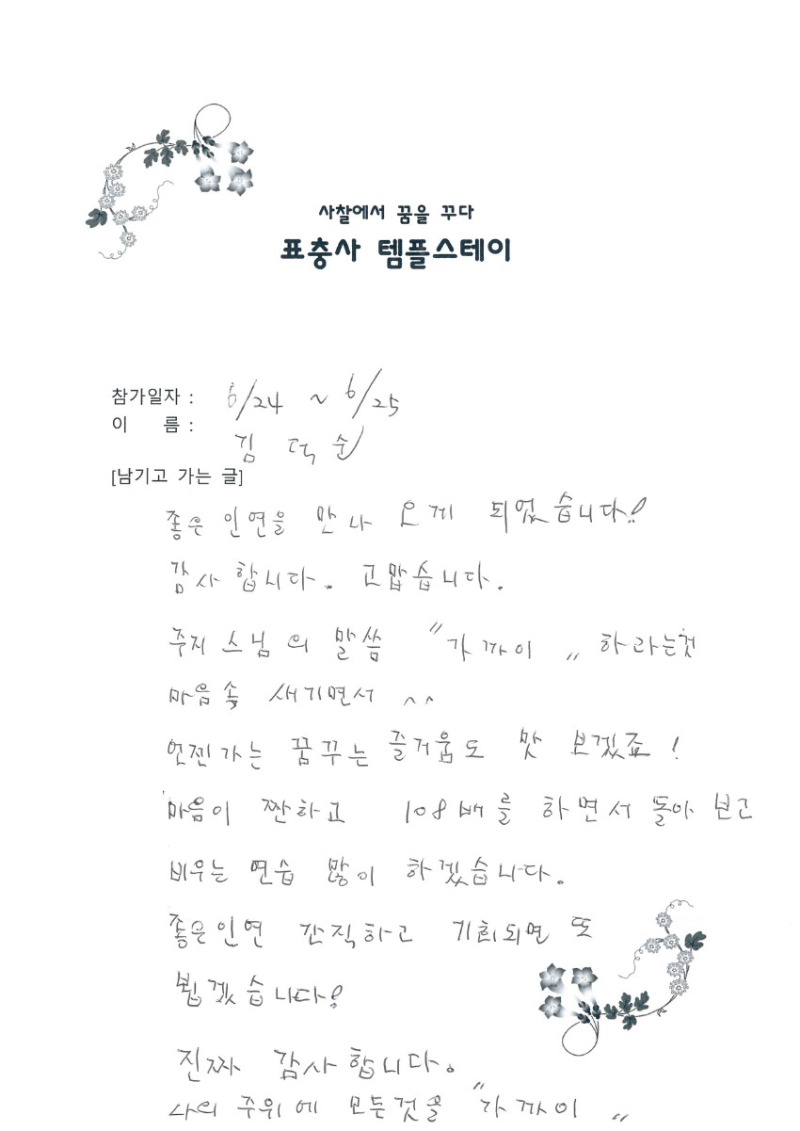 사찰에서 꿈을 꾸다
표충사 템플스테이
참가일자 : 6/24 ~ 6/25
이 름 : 김 덕 순
[남기고 가는 글]
좋은 인연을 만나 오게 되었습니다!
감사 합니다. 고맙습니다.
주지 스님 의 말씀 "가까이" 하라는것
마음속 새기면서 ^^
언젠가는 꿈꾸는 즐거움도 맛 보겠죠 !
마음이 짠하고 108배를 하면서 돌아 보고
비우는 연습 많이 하겠습니다.
좋은인연 간직하고 기회되면 또
뵙겠습니다!
진짜 감사합니다.
나의 주위에 모든것을 "가까이"